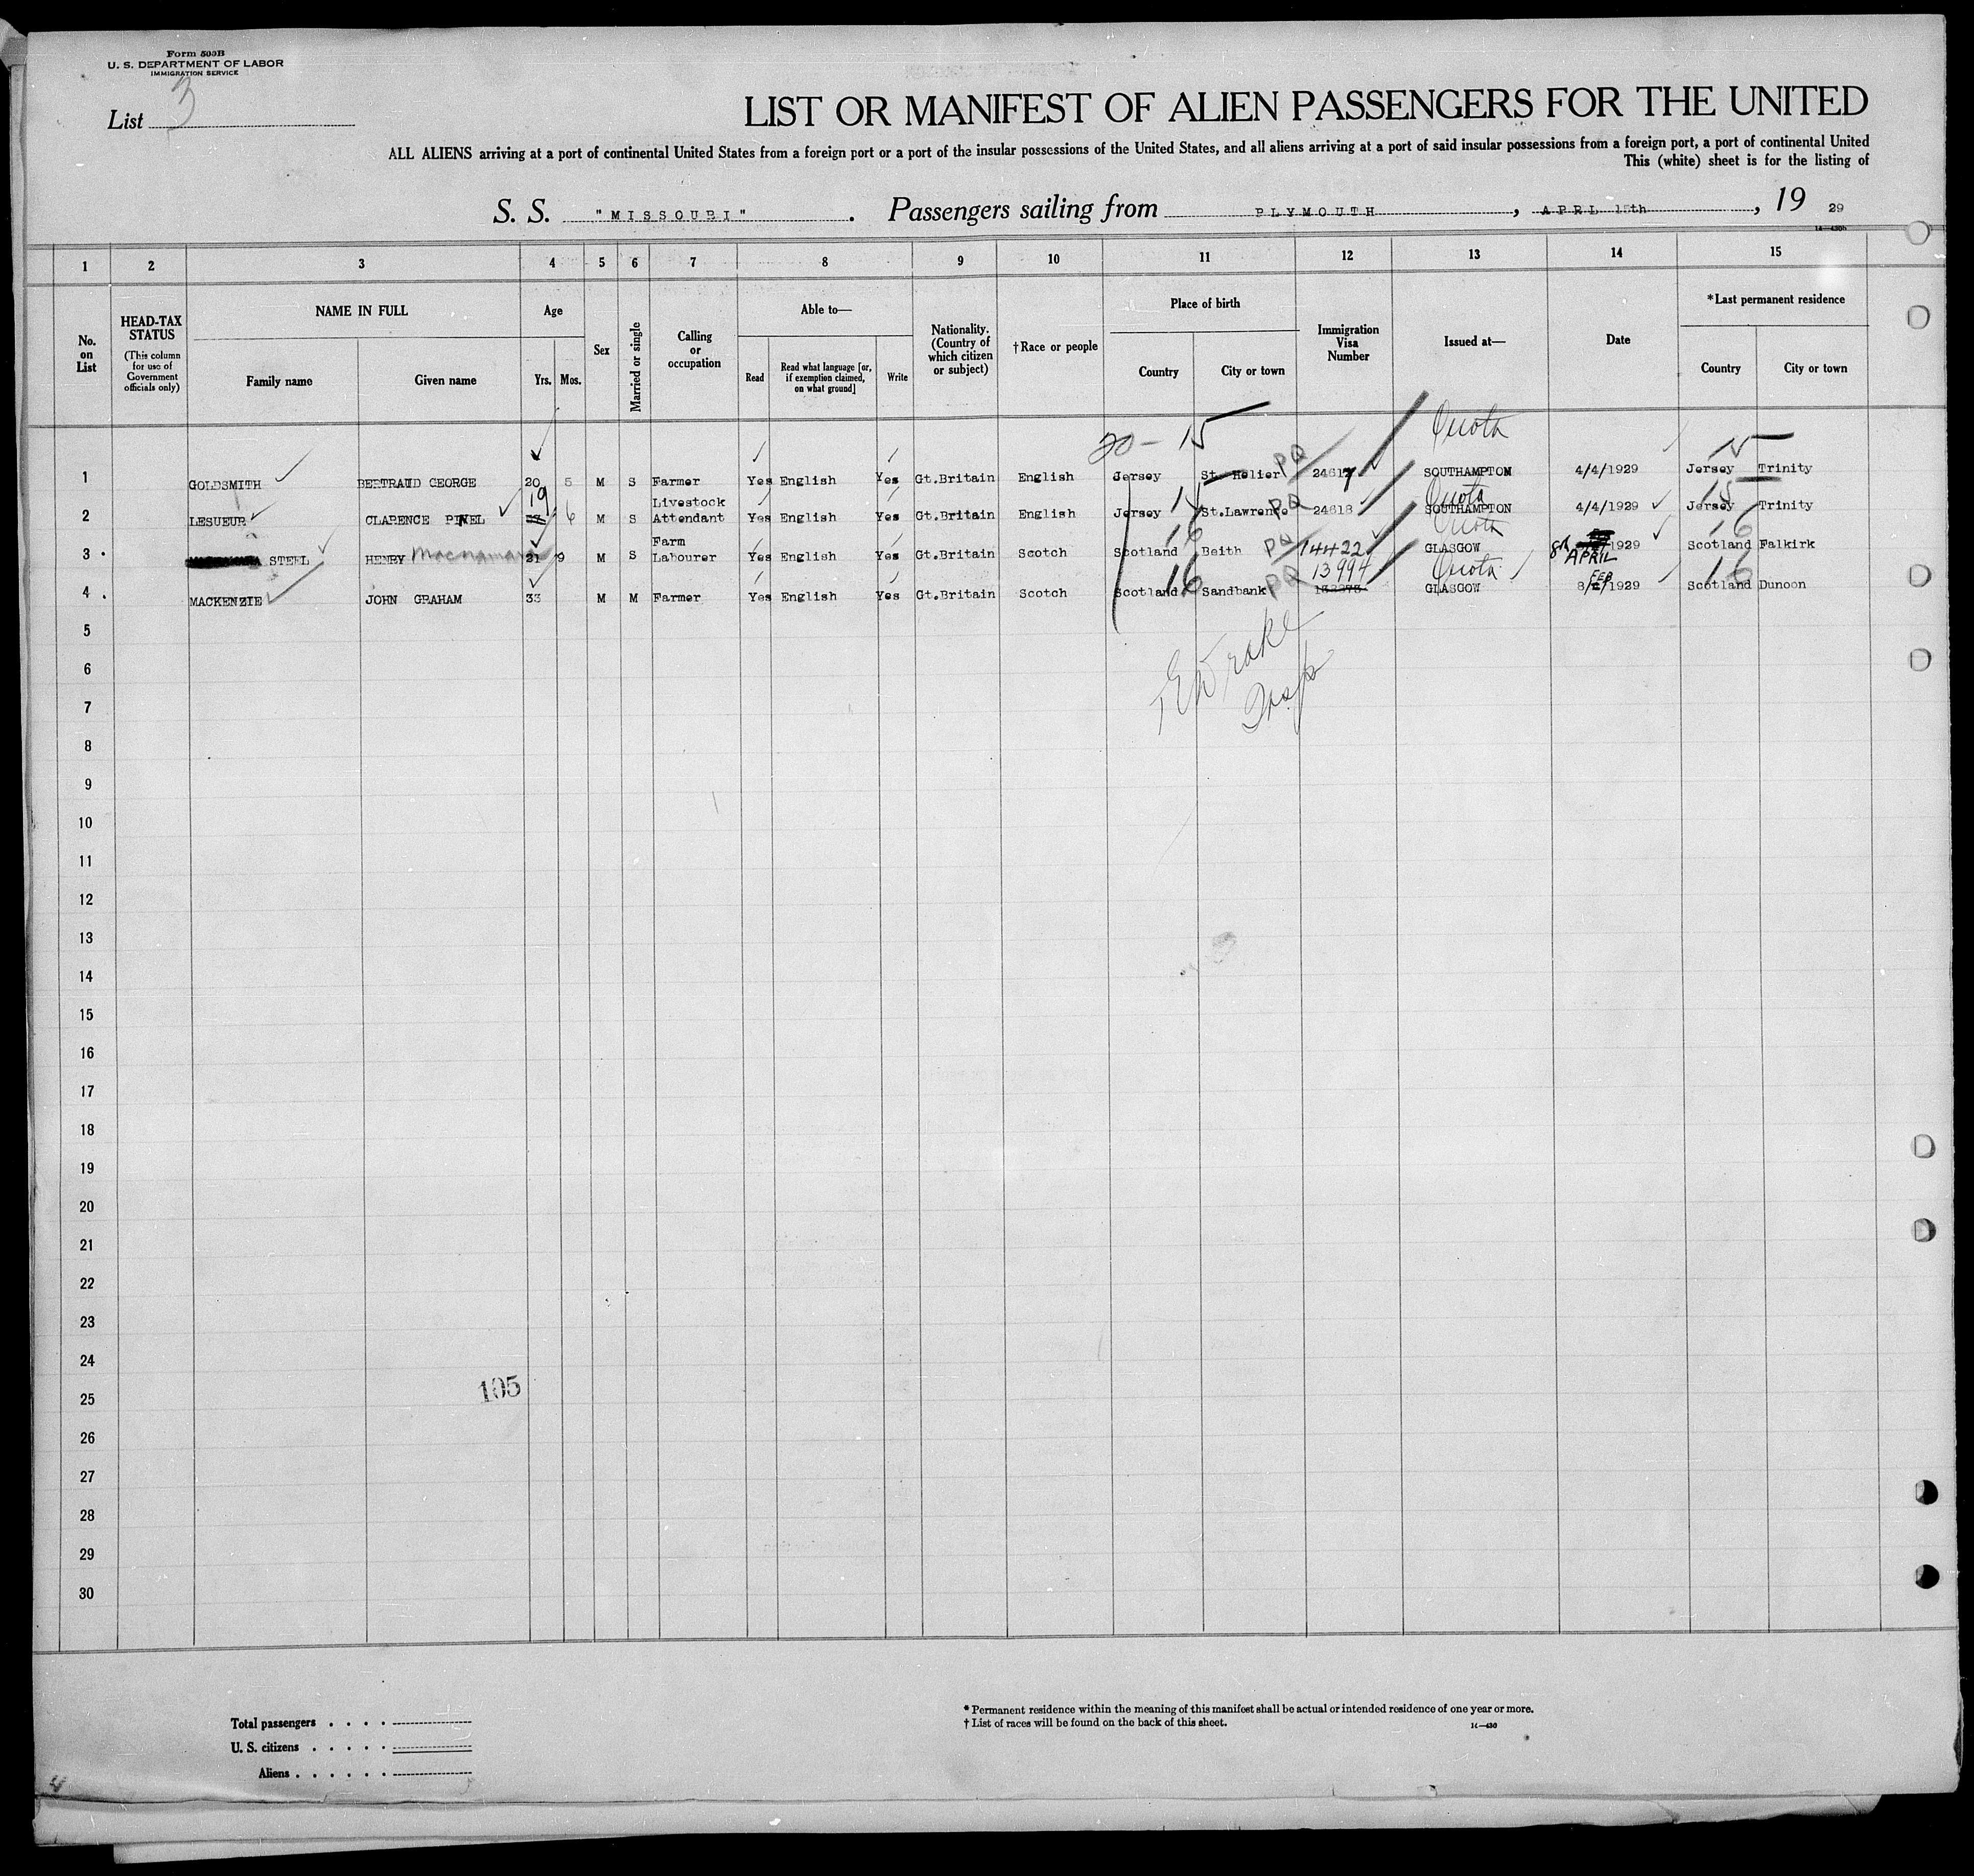 Form 500B
U. S. DEPARTMENT OF LABOR
IMMIGRATION SERVICE
List 3
LIST OR MANIFEST OF ALIEN PASSENGERS FOR THE UNITED
ALL ALIENS arriving at a port of continental United States from a foreign port or a port of the insular possessions of the United States, and all aliens arriving at a port of said insular possessions from a foreign port, a port of continental United
This (white) sheet is for the listing of
S. S. "MISSOURI". Passengers sailing from PLYMOUTH, APRL 15th, 19 29
1 2 3 4 5 6 7 8 9 10 11 12 13 14 15
No. on List
HEAD-TAX STATUS
(This column for use of Government officials only)
NAME IN FULL
Family name Given name
Age
Yrs. Mos.
Sex
Married or single
Calling or occupation
Able to—
Read Read what language [or, if exemption claimed, on what ground] Write
Nationality. (Country of which citizen or subject)
†Race or people
Place of birth
Country City or town
Immigration Visa Number
Issued at—
Date
*Last permanent residence
Country City or town
20 - 15 Quota 15
1 GOLDSMITH BERTRAUD GEORGE 20 5 M S Farmer Yes English Yes Gt.Britain English Jersey St. Helier PQ 24617 SOUTHAMPTON 4/4/1929 Jersey Trinity
19 Livestock 15 Quota 15
2 LESUEUR CLARENCE PINEL 6 M S Attendant Yes English Yes Gt.Britain English Jersey St.Lawrence PQ 24618 SOUTHAMPTON 4/4/1929 Jersey Trinity
Farm 16 Quota 16
3 STEEL HENRY Macnamara 21 9 M S Labourer Yes English Yes Gt.Britain Scotch Scotland Beith PQ 14422 GLASGOW 8th APRIL 1929 Scotland Falkirk
16 13994 Quota FEB 16
4 MACKENZIE JOHN GRAHAM 33 M M Farmer Yes English Yes Gt.Britain Scotch Scotland Sandbank PQ GLASGOW 8/2/1929 Scotland Dunoon
5
6
Drake
Insp
7
8
9
10
11
12
13
14
15
16
17
18
19
20
21
22
23
24
25
105
26
27
28
29
30
* Permanent residence within the meaning of this manifest shall be actual or intended residence of one year or more.
† List of races will be found on the back of this sheet. 14—430
Total passengers
U. S. citizens
Aliens
4